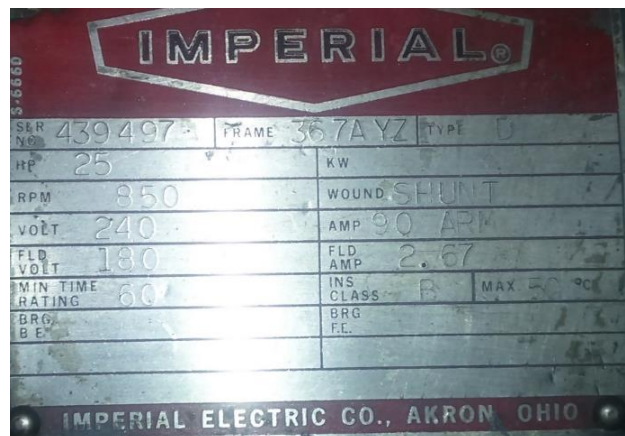 IMPERIAL®
S-6660
SER NO. 439497 FRAME 367AYZ TYPE D
HP 25 KW
RPM 850 WOUND SHUNT
VOLT 240 AMP 90 ARM
FLD VOLT 180 FLD AMP 2.67
MIN TIME RATING 60 INS CLASS B MAX 50 °C
BRG B.E. BRG F.E.
IMPERIAL ELECTRIC CO., AKRON OHIO